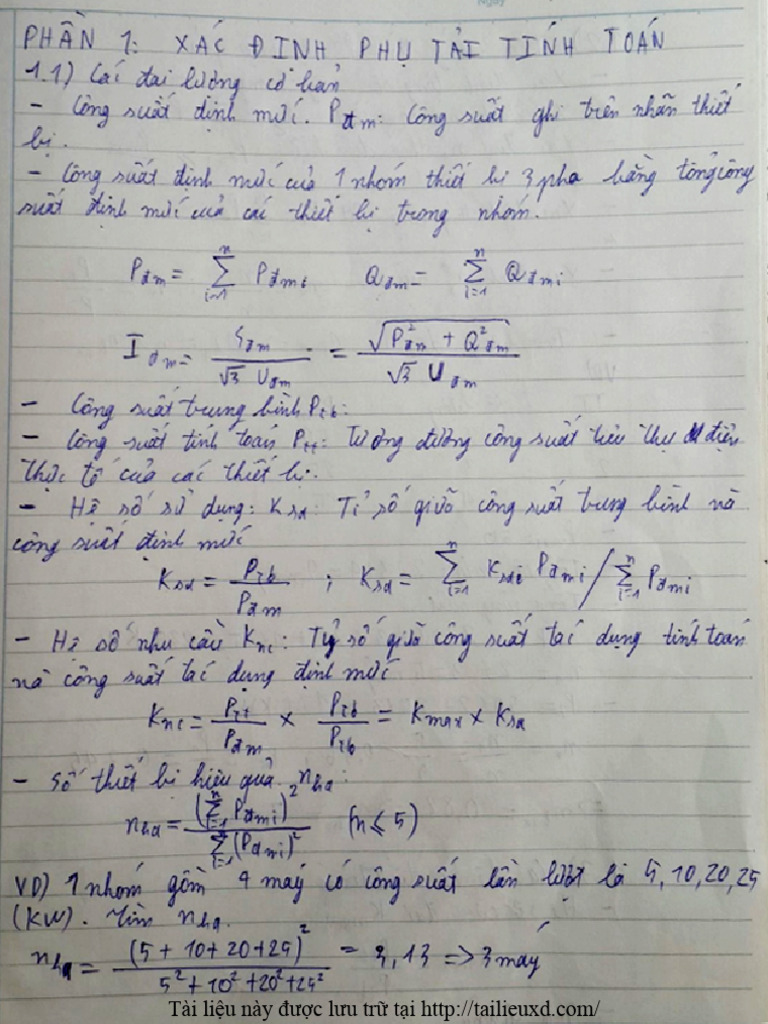 PHẦN 1: XÁC ĐỊNH PHỤ TẢI TÍNH TOÁN
1.1) Các đại lượng cơ bản
- Công suất định mức. Pđm: Công suất ghi trên nhãn thiết
bị.
- Công suất định mức của 1 nhóm thiết bị 3 pha bằng tổng công
suất định mức của các thiết bị trong nhóm.
Pđm = ∑_{i=1}^{n} Pđmi    Qđm = ∑_{i=1}^{n} Qđmi
Iđm = Sđm / (√3 Uđm) = √(P²đm + Q²đm) / (√3 Uđm)
- Công suất trung bình Ptb:
- Công suất tính toán Ptt: Tương đương công suất tiêu thụ điện
thực tế của các thiết bị.
- Hệ số sử dụng: Ksd: Tỉ số giữa công suất trung bình và
công suất định mức
Ksd = Ptb / Pđm ; Ksd = ∑_{i=1}^{n} Ksdi Pđmi / ∑_{i=1}^{n} Pđmi
- Hệ số nhu cầu Knc: Tỷ số giữa công suất tác dụng tính toán
và công suất tác dụng định mức
Knc = Ptt / Pđm × Ptb / Ptb = Kmax × Ksd
- Số thiết bị hiệu quả nhq:
nhq = (∑_{i=1}^{n} Pđmi)² / ∑_{i=1}^{n} (Pđmi)²    (n ≤ 5)
VD) 1 nhóm gồm 4 máy có công suất lần lượt là 5, 10, 20, 25
(KW). Tìm nhq.
nhq = (5 + 10 + 20 + 25)² / (5² + 10² + 20² + 25²) = 3,13 => 3 máy
Tài liệu này được lưu trữ tại http://tailieuxd.com/